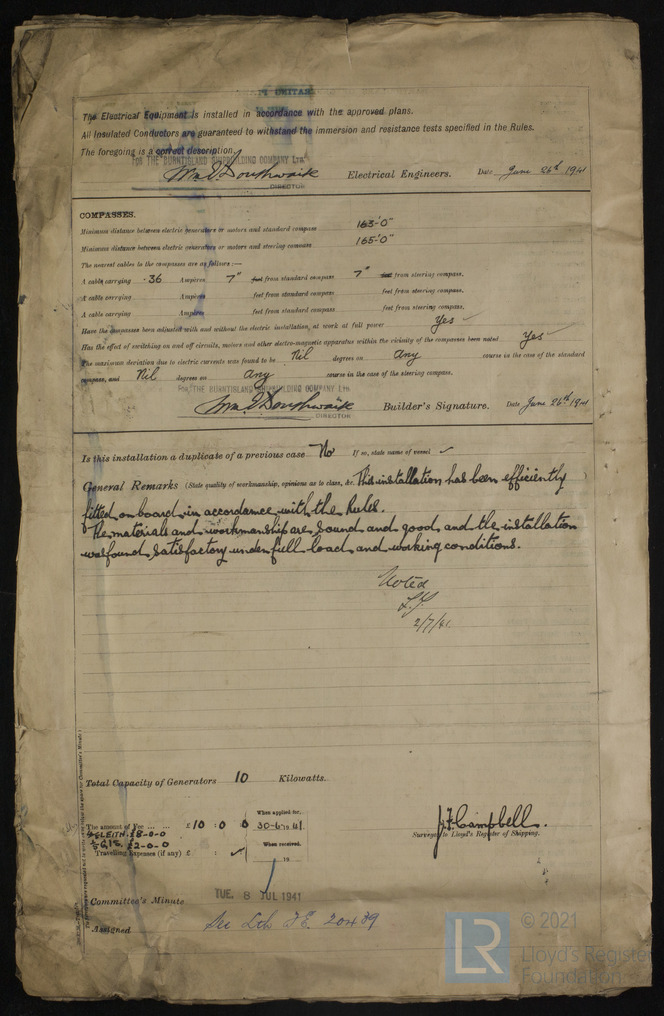 The Electrical Equipment is installed in accordance with the approved plans.
All Insulated Conductors are guaranteed to withstand the immersion and resistance tests specified in the Rules.
The foregoing is a correct description.
FOR THE BURNTISLAND SHIPBUILDING COMPANY LTD.
Electrical Engineers. Date June 26th 1941
DIRECTOR
COMPASSES.
Minimum distance between electric generators or motors and standard compass 163'-0"
Minimum distance between electric generators or motors and steering compass 165'-0"
The nearest cables to the compasses are as follows :—
A cable carrying .36 Ampères 7" feet from standard compass 7" feet from steering compass.
A cable carrying Ampères feet from standard compass feet from steering compass.
A cable carrying Ampères feet from standard compass feet from steering compass.
Have the compasses been adjusted with and without the electric installation, at work at full power Yes
Has the effect of switching on and off circuits, motors and other electro-magnetic apparatus within the vicinity of the compasses been noted Yes
The maximum deviation due to electric currents was found to be Nil degrees on any course in the case of the standard
compass, and Nil degrees on any course in the case of the steering compass.
FOR THE BURNTISLAND SHIPBUILDING COMPANY LTD.
Builder's Signature. Date June 26th 1941
DIRECTOR
Is this installation a duplicate of a previous case No If so, state name of vessel ✓
General Remarks (State quality of workmanship, opinions as to class, &c. This installation has been efficiently
fitted on board in accordance with the Rules.
The materials and workmanship are sound and good and the installation
was found satisfactory under full load and working conditions.
Noted
2/7/41.
Total Capacity of Generators 10 Kilowatts.
When applied for,
The amount of Fee ... ... £ 10 : 0 : 0 30-6-1941.
LEITH. £8-0-0
£2-0-0
When received,
Travelling Expenses (if any) £ : ✓ : 19
J.F. Campbell.
Surveyor to Lloyd's Register of Shipping.
TUE. 8 JUL 1941
Committee's Minute
Assigned See F.E. 20439
LR © 2021
Lloyd's Register
Foundation